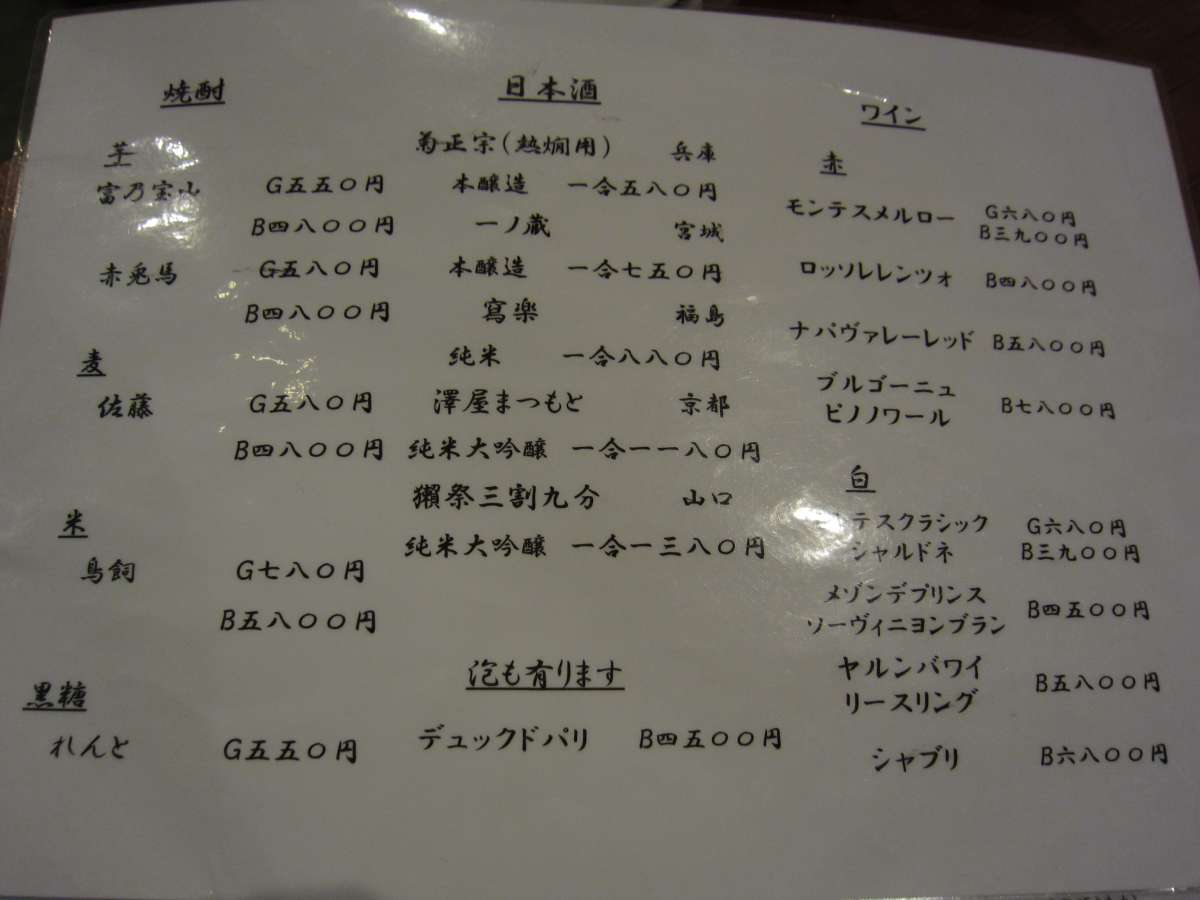 焼酎
芋
富乃宝山 G五五〇円
B四八〇〇円
赤兎馬 G五八〇円
B四八〇〇円
麦
佐藤 G五八〇円
B四八〇〇円
米
鳥飼 G七八〇円
B五八〇〇円
黒糖
れんと G五五〇円
日本酒
菊正宗(熱燗用) 兵庫
本醸造 一合五八〇円
一ノ蔵 宮城
本醸造 一合七五〇円
寫楽 福島
純米 一合八八〇円
澤屋まつもと 京都
純米大吟醸 一合一一八〇円
獺祭三割九分 山口
純米大吟醸 一合一三八〇円
泡も有ります
デュックドパリ B四五〇〇円
ワイン
赤
モンテスメルロー G六八〇円
B三九〇〇円
ロッソレレンツォ B四八〇〇円
ナパヴァレーレッド B五八〇〇円
ブルゴーニュ
ピノノワール B七八〇〇円
白
テスクラシック G六八〇円
シャルドネ B三九〇〇円
メゾンデプリンス
ソーヴィニヨンブラン B四五〇〇円
ヤルンバワイ
リースリング B五八〇〇円
シャブリ B六八〇〇円